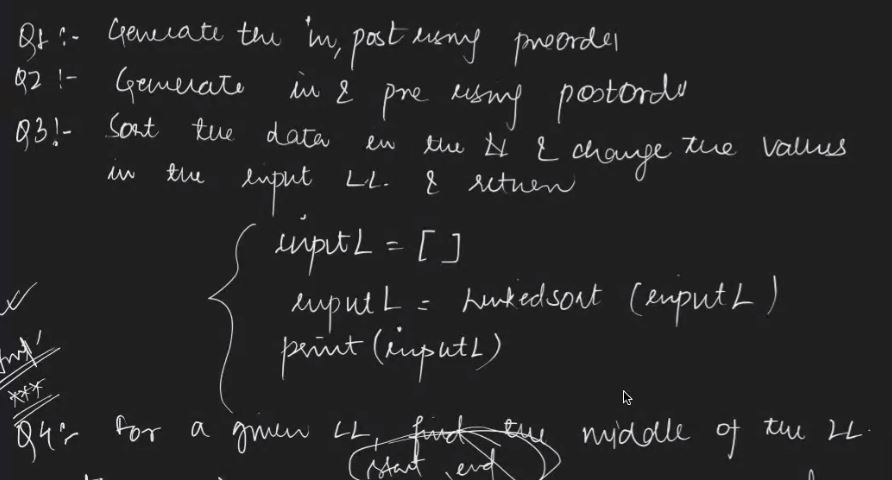 Q1 :- Generate the in, post using preorder
Q2 :- Generate in & pre using postorder
Q3 :- Sort the data in the LL & change the values
in the input LL. & return
inputL = [ ]
inputL = Linkedsort (inputL)
print (inputL)
Imp
***
Q4 :- For a given LL, find the middle of the LL.
(start, end)